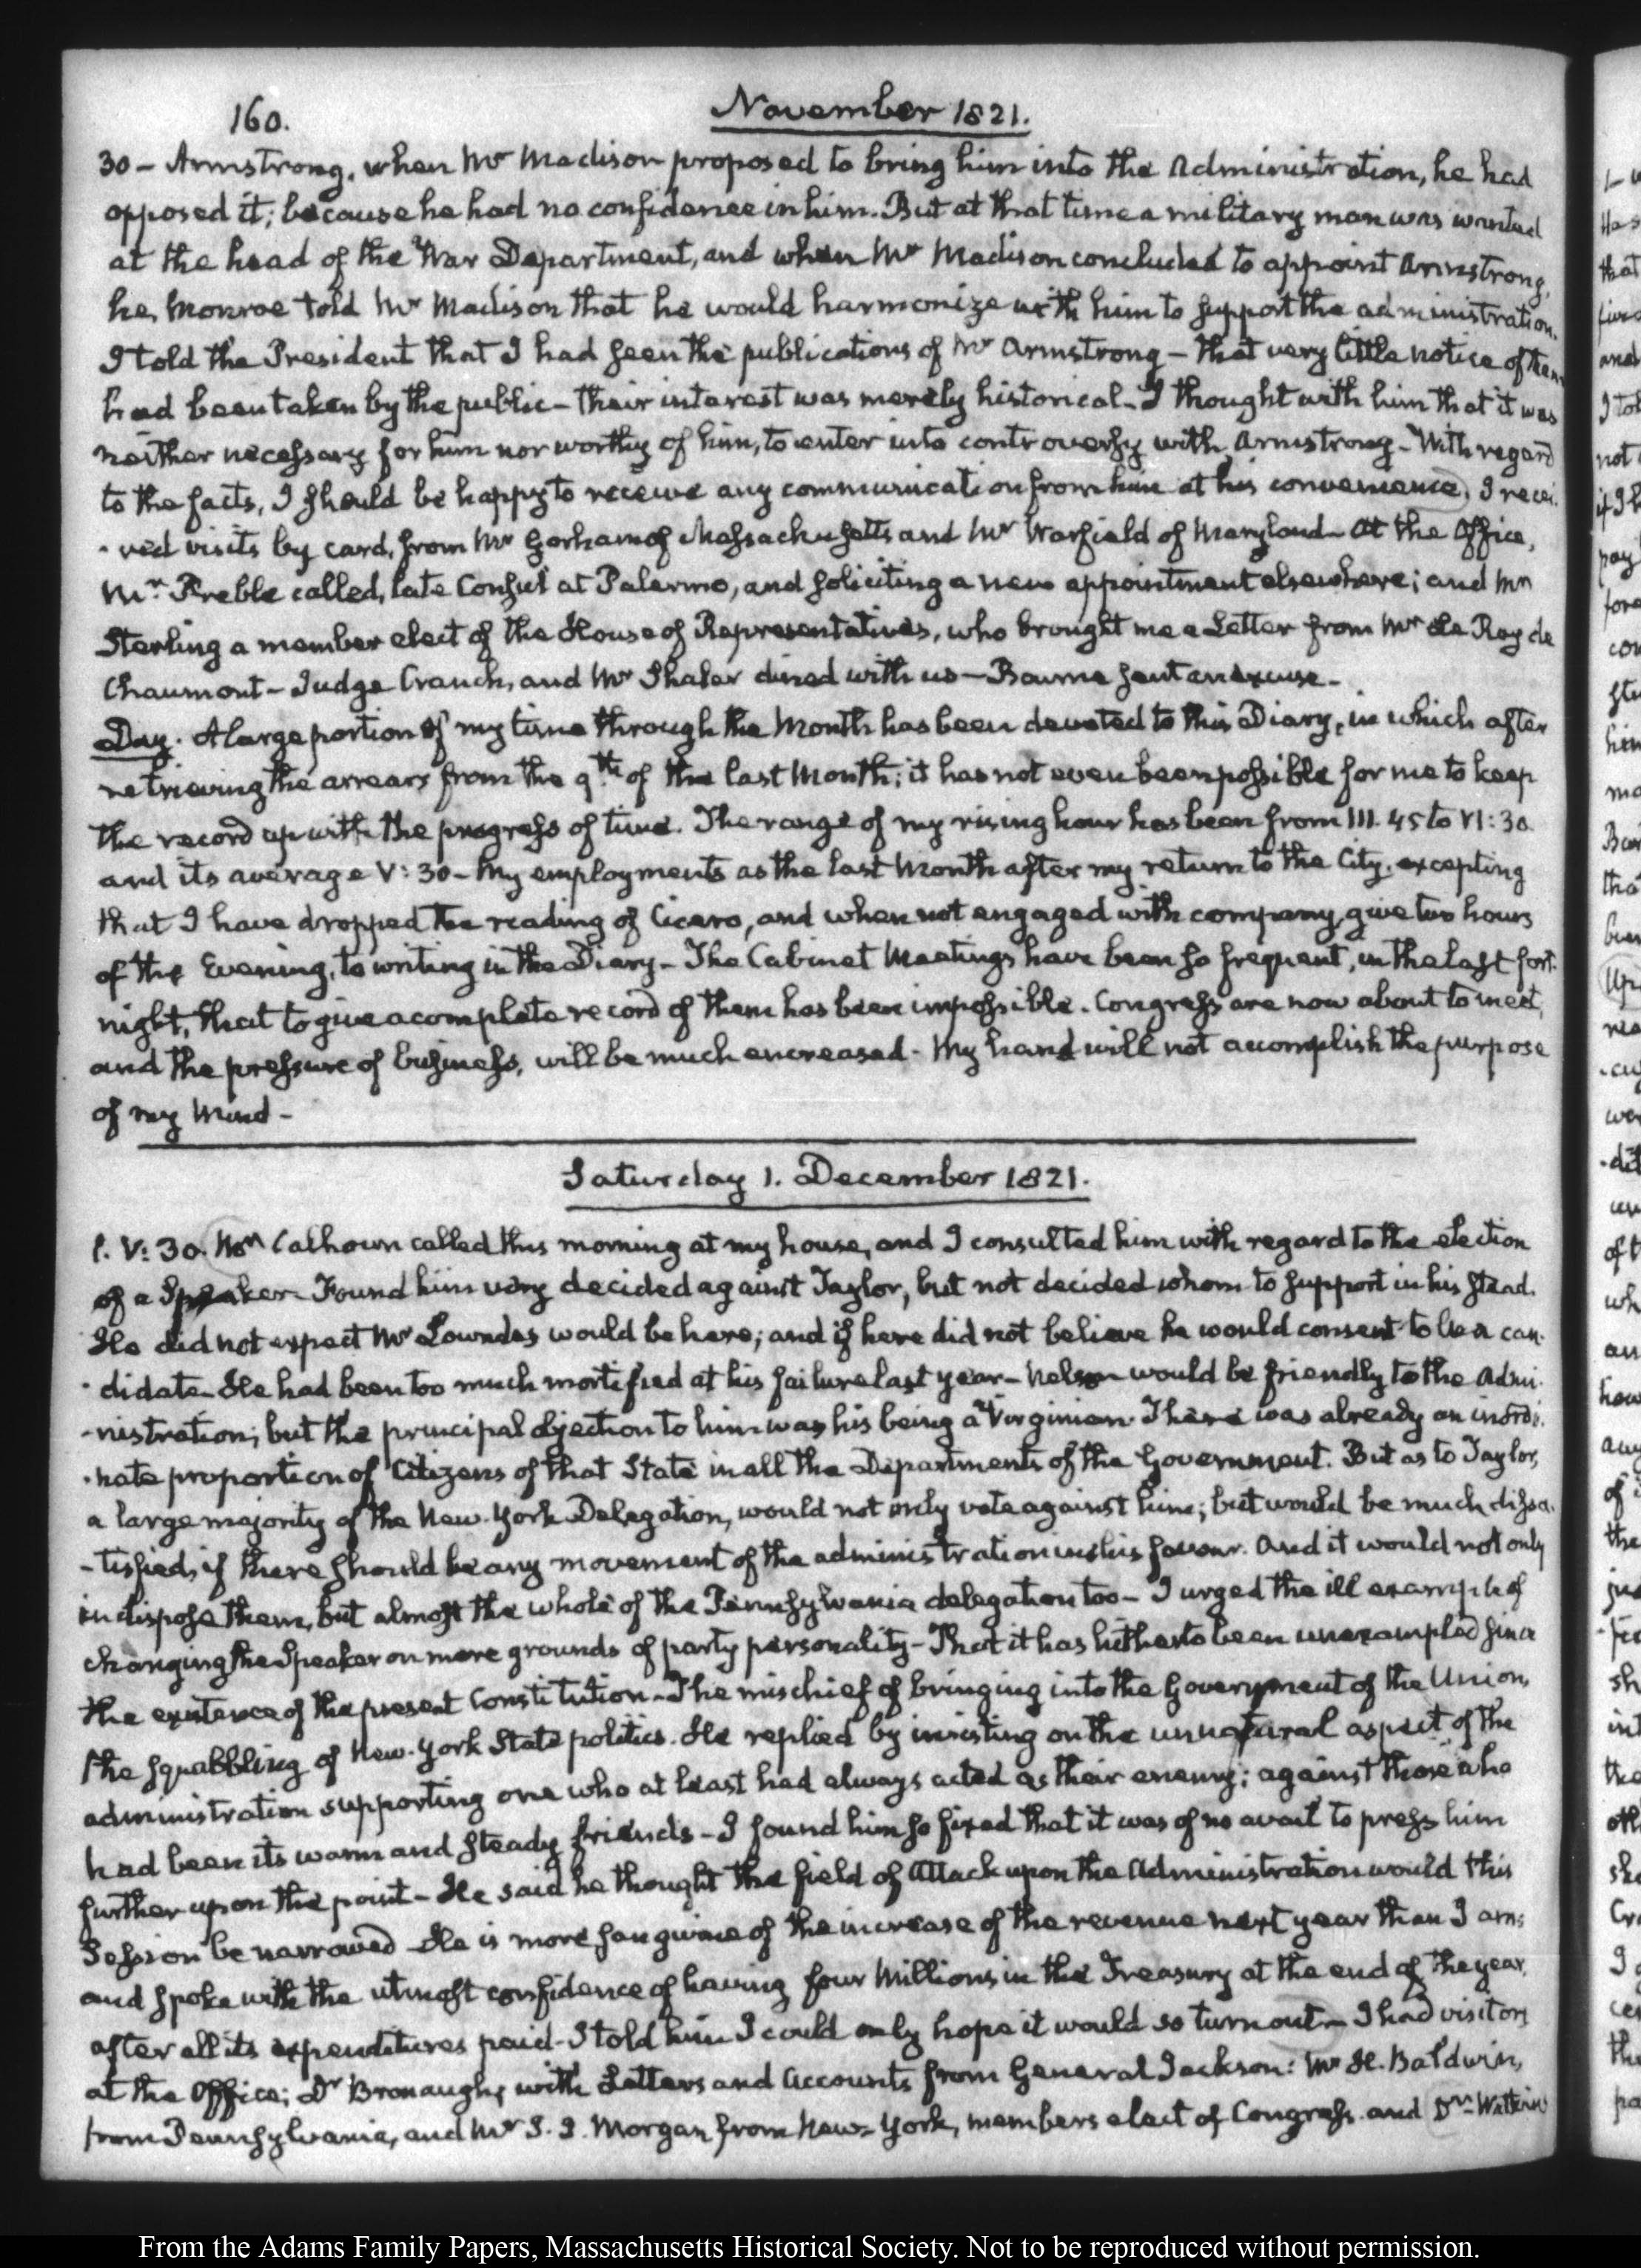 160. November 1821.
30 - Armstrong, when Mr Madison proposed to bring him into the Administration, he had
opposed it; because he had no confidence in him. But at that time a military man was wanted
at the head of the War Department, and when Mr Madison concluded to appoint Armstrong,
he, Monroe told Mr Madison that he would harmonize with him to support the administration.
I told the President that I had seen the publications of Mr Armstrong - that very little notice of them
had been taken by the public - their interest was merely historical - I thought with him that it was
neither necessary for him nor worthy of him, to enter into controversy with Armstrong - With regard
to the facts, I should be happy to receive any communication from him at his convenience. I recei-
-ved visits by card, from Mr Gorham of Massachusetts and Mr Warfield of Maryland - At the Office,
Mr Preble called, late Consul at Palermo, and soliciting a new appointment elsewhere; and Mr
Sterling a member elect of the House of Representatives, who brought me a Letter from Mr Le Ray de
Chaumont - Judge Cranch, and Mr Shaler dined with us - Bourne sent an excuse -
Day. A large portion of my time through the Month has been devoted to this Diary, in which after
retrieving the arrears from the 9th of the last Month; it has not even been possible for me to keep
the record up with the progress of time. The range of my rising hour has been from III. 45 to VI: 30
and its average V: 30 - My employments as the last Month after my return to the City, excepting
that I have dropped the reading of Cicero, and when not engaged with company, give two hours
of the Evening, to writing in the Diary - The Cabinet Meetings have been so frequent, in the last fort-
night, that to give a complete record of them has been impossible. Congress are now about to meet,
and the pressure of business, will be much encreased - My hand will not accomplish the purpose
of my Mind -
Saturday 1. December 1821.
1. V: 30. Mr Calhoun called this morning at my house, and I consulted him with regard to the election
of a Speaker - Found him very decided against Taylor, but not decided whom to support in his stead.
He did not expect Mr Lowndes would be here; and if here did not believe he would consent to be a can-
-didate - He had been too much mortified at his failure last year - Nelson would be friendly to the Admi-
-nistration; but the principal objection to him was his being a Virginian. There was already an inordi-
-nate proportion of Citizens of that State in all the Departments of the Government. But as to Taylor,
a large majority of the New-York Delegation, would not only vote against him; but would be much dissa-
-tisfied, if there should be any movement of the administration in his favour. And it would not only
indispose them, but almost the whole of the Pennsylvania delegation too - I urged the ill example of
changing the Speaker on mere grounds of party personality - That it has hitherto been unexampled since
the existence of the present Constitution - The mischief of bringing into the Government of the Union,
the squabbling of New-York State politics. He replied by insisting on the unnatural aspect of the
administration supporting one who at least had always acted as their enemy; against those who
had been its warm and steady friends - I found him so fixed that it was of no avail to press him
further upon the point - He said he thought the field of Attack upon the Administration would this
Session be narrowed - He is more sanguine of the increase of the revenue next year than I am;
and spoke with the utmost confidence of having four Millions in the Treasury at the end of the year,
after all its expenditures paid - I told him I could only hope it would so turn out - I had visitors
at the Office; Dr Bronaugh, with Letters and Accounts from General Jackson: Mr H. Baldwin,
from Pennsylvania, and Mr J. J. Morgan from New-York, members elect of Congress. and Dr Watkins
From the Adams Family Papers, Massachusetts Historical Society. Not to be reproduced without permission.